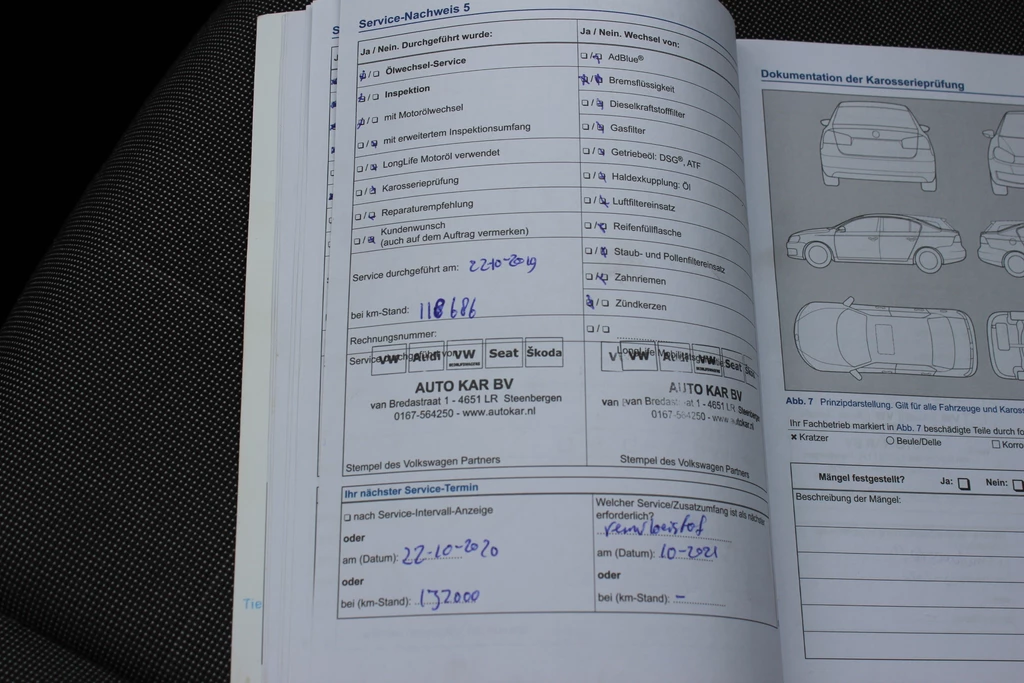 Service-Nachweis 5
Ja / Nein. Durchgeführt wurde:
Ölwechsel-Service
Inspektion
mit Motorölwechsel
mit erweitertem Inspektionsumfang
LongLife Motoröl verwendet
Karosserieprüfung
Reparaturempfehlung
Kundenwunsch
(auch auf dem Auftrag vermerken)
Service durchgeführt am: 22-10-2019
bei km-Stand: 118686
Rechnungsnummer:
VW Audi VW Seat Škoda
AUTO KAR BV
van Bredastraat 1 - 4651 LR Steenbergen
0167-564250 - www.autokar.nl
Stempel des Volkswagen Partners
Ja / Nein. Wechsel von:
AdBlue®
Bremsflüssigkeit
Dieselkraftstofffilter
Gasfilter
Getriebeöl: DSG®, ATF
Haldexkupplung: Öl
Luftfiltereinsatz
Reifenfüllflasche
Staub- und Pollenfiltereinsatz
Zahnriemen
Zündkerzen
VW Audi VW Seat
AUTO KAR BV
van Bredastraat 1 - 4651 LR Steenbergen
0167-564250 - www.autokar.nl
Stempel des Volkswagen Partners
Ihr nächster Service-Termin
nach Service-Intervall-Anzeige
oder
am (Datum): 22-10-2020
oder
bei (km-Stand): 132000
Welcher Service/Zusatzumfang ist als nächste
erforderlich?
remvloeistof
am (Datum): 10-2021
oder
bei (km-Stand): -
Tie
Dokumentation der Karosserieprüfung
Abb. 7 Prinzipdarstellung. Gilt für alle Fahrzeuge und Kaross
Ihr Fachbetrieb markiert in Abb. 7 beschädigte Teile durch fo
x Kratzer
Beule/Delle
Korro
Mängel festgestellt? Ja: Nein:
Beschreibung der Mängel: